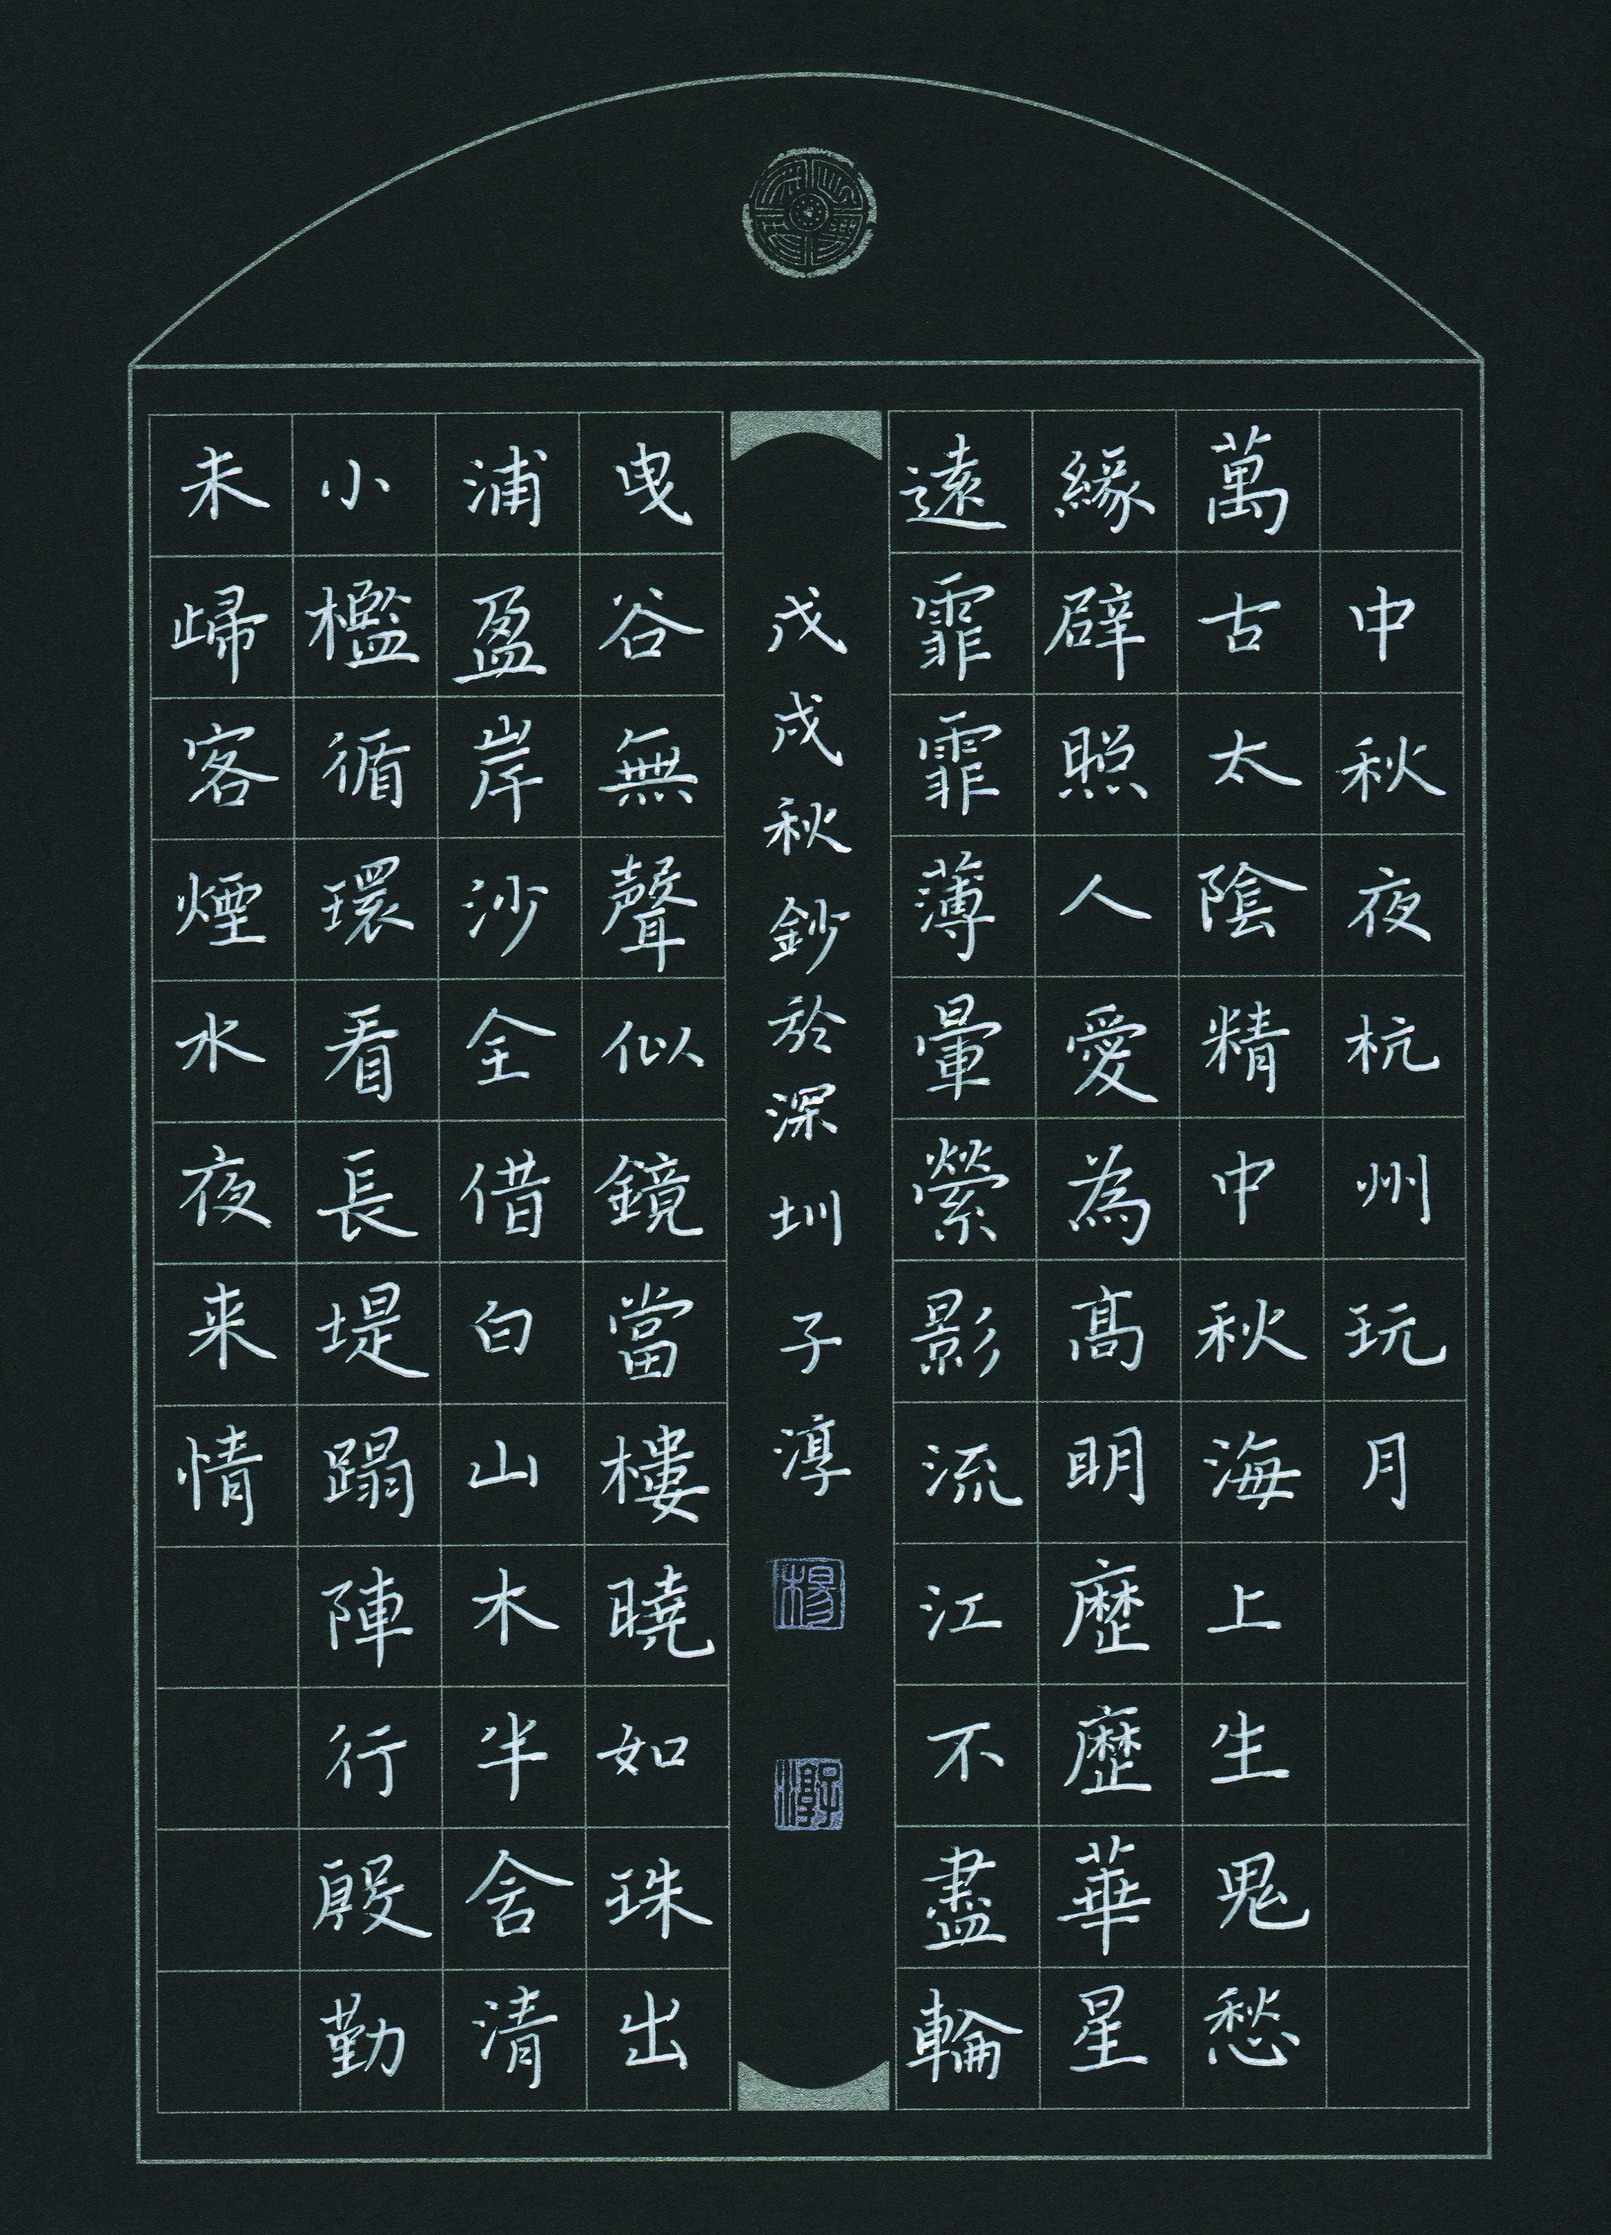 中秋夜杭州玩月
萬古太陰精中秋海上生鬼愁
緣辟照人愛為高明歷歷華星
遠霏霏薄暈縈影流江不盡輪
戊戌秋鈔於深圳子淳
曳谷無聲似鏡當樓曉如珠出
浦盈岸沙全借白山木半含清
小檻循環看長堤蹋陣行殷勤
未歸客煙水夜来情
楊